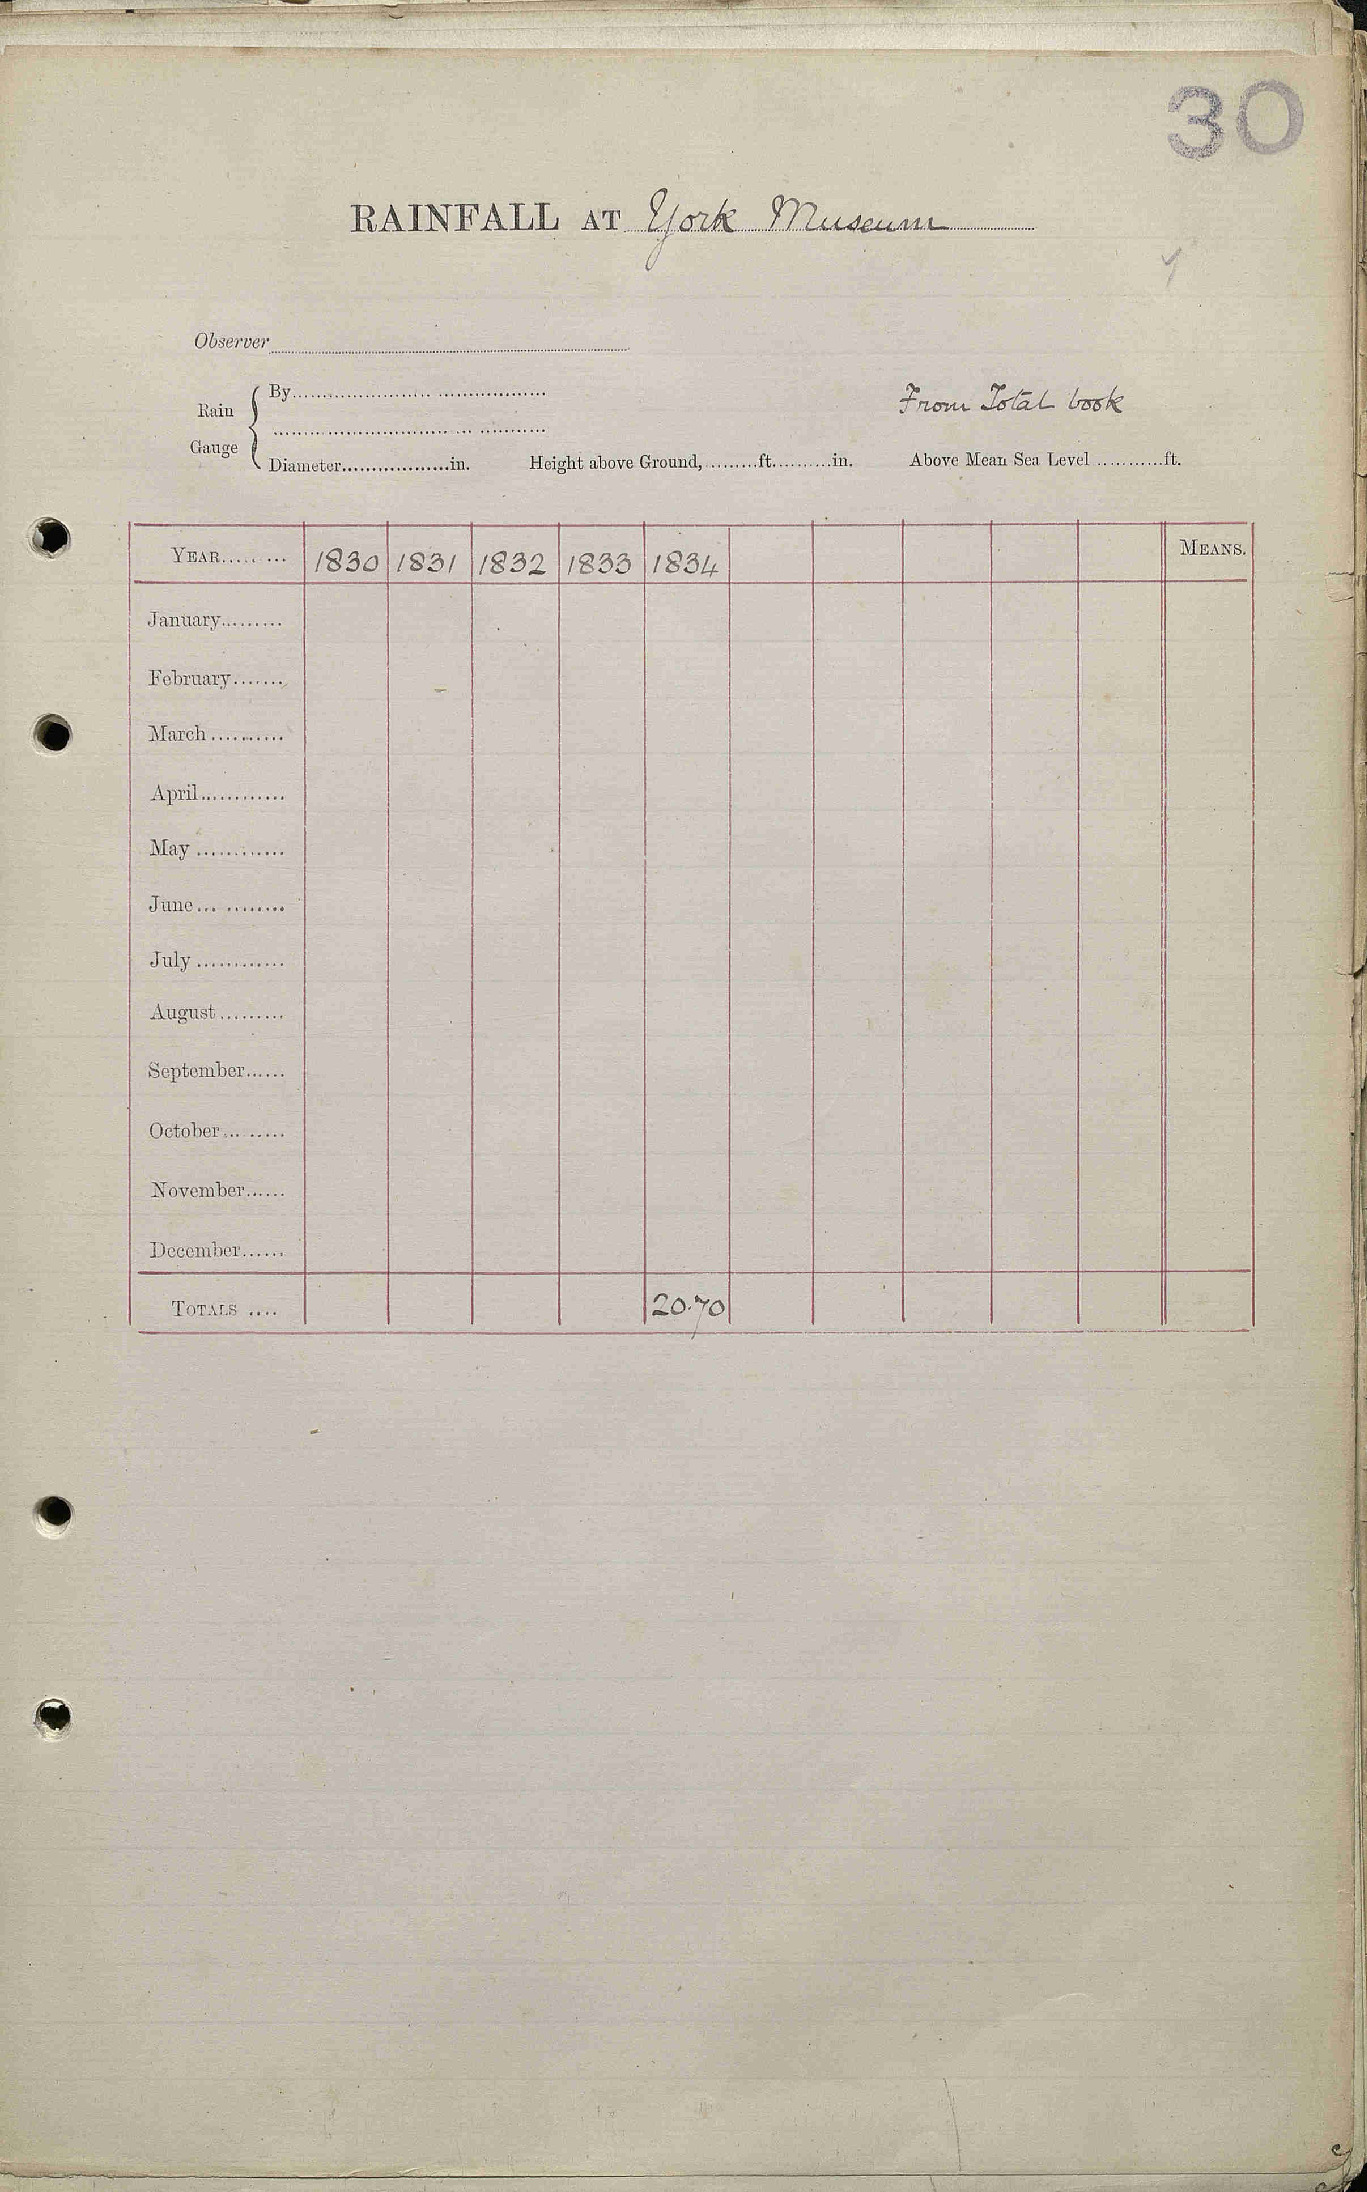 30
RAINFALL AT York Museum
Observer
Rain Gauge { By
From Total book
Diameter in. Height above Ground, ft. in. Above Mean Sea Level ft.
YEAR 1830 1831 1832 1833 1834 MEANS.
January
February
March
April
May
June
July
August
September
October
November
December
TOTALS 20.70